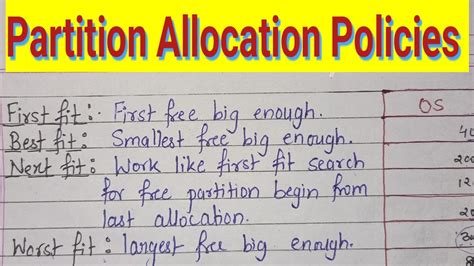 Partition Allocation Policies
First fit:- First free big enough.
OS
Best fit:- Smallest free big enough.
Next fit:- Work like first fit search
for free partition begin from
last allocation.
Worst fit:- largest free big enough.